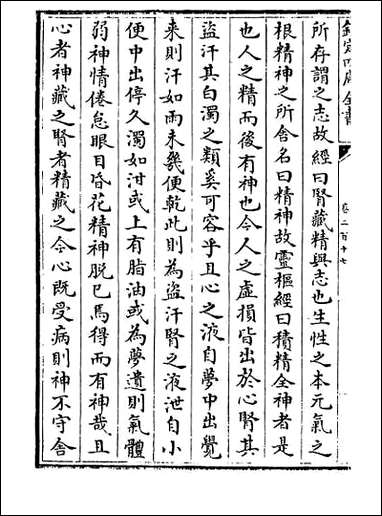 欽定四庫全書
卷二百十七
所存謂之志故經曰腎藏精與志也生性之本元氣之
根精神之所舍名曰精神故靈樞經曰積精全神者是
也人之精而後有神也今人之虛損皆出於心腎其
盜汗其白濁之類奚可容乎且心之液自夢中出覺
來則汗如雨未幾便乾此則為盜汗腎之液泄自小
便中出停久濁如泔或上有脂油或為夢遺則氣體
弱神情倦怠眼目昏花精神脫已焉得而有神哉且
心者神藏之腎者精藏之今心既受病則神不守舍